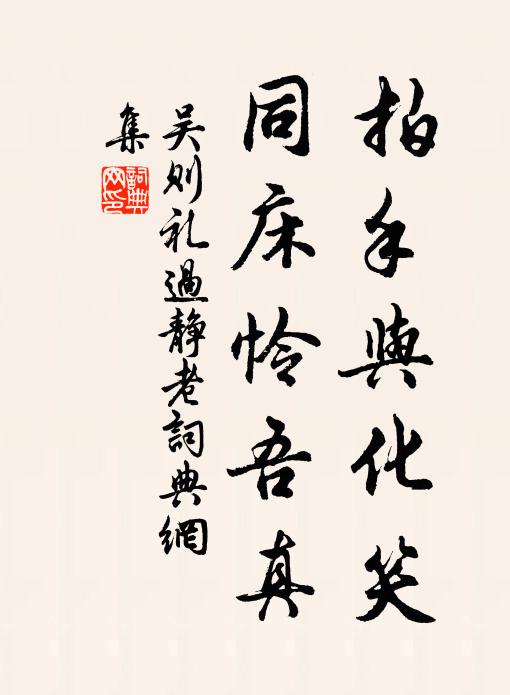 拍手與化笑
同床怜吾真
吴则礼過静老詞典網
集
詞典
网印